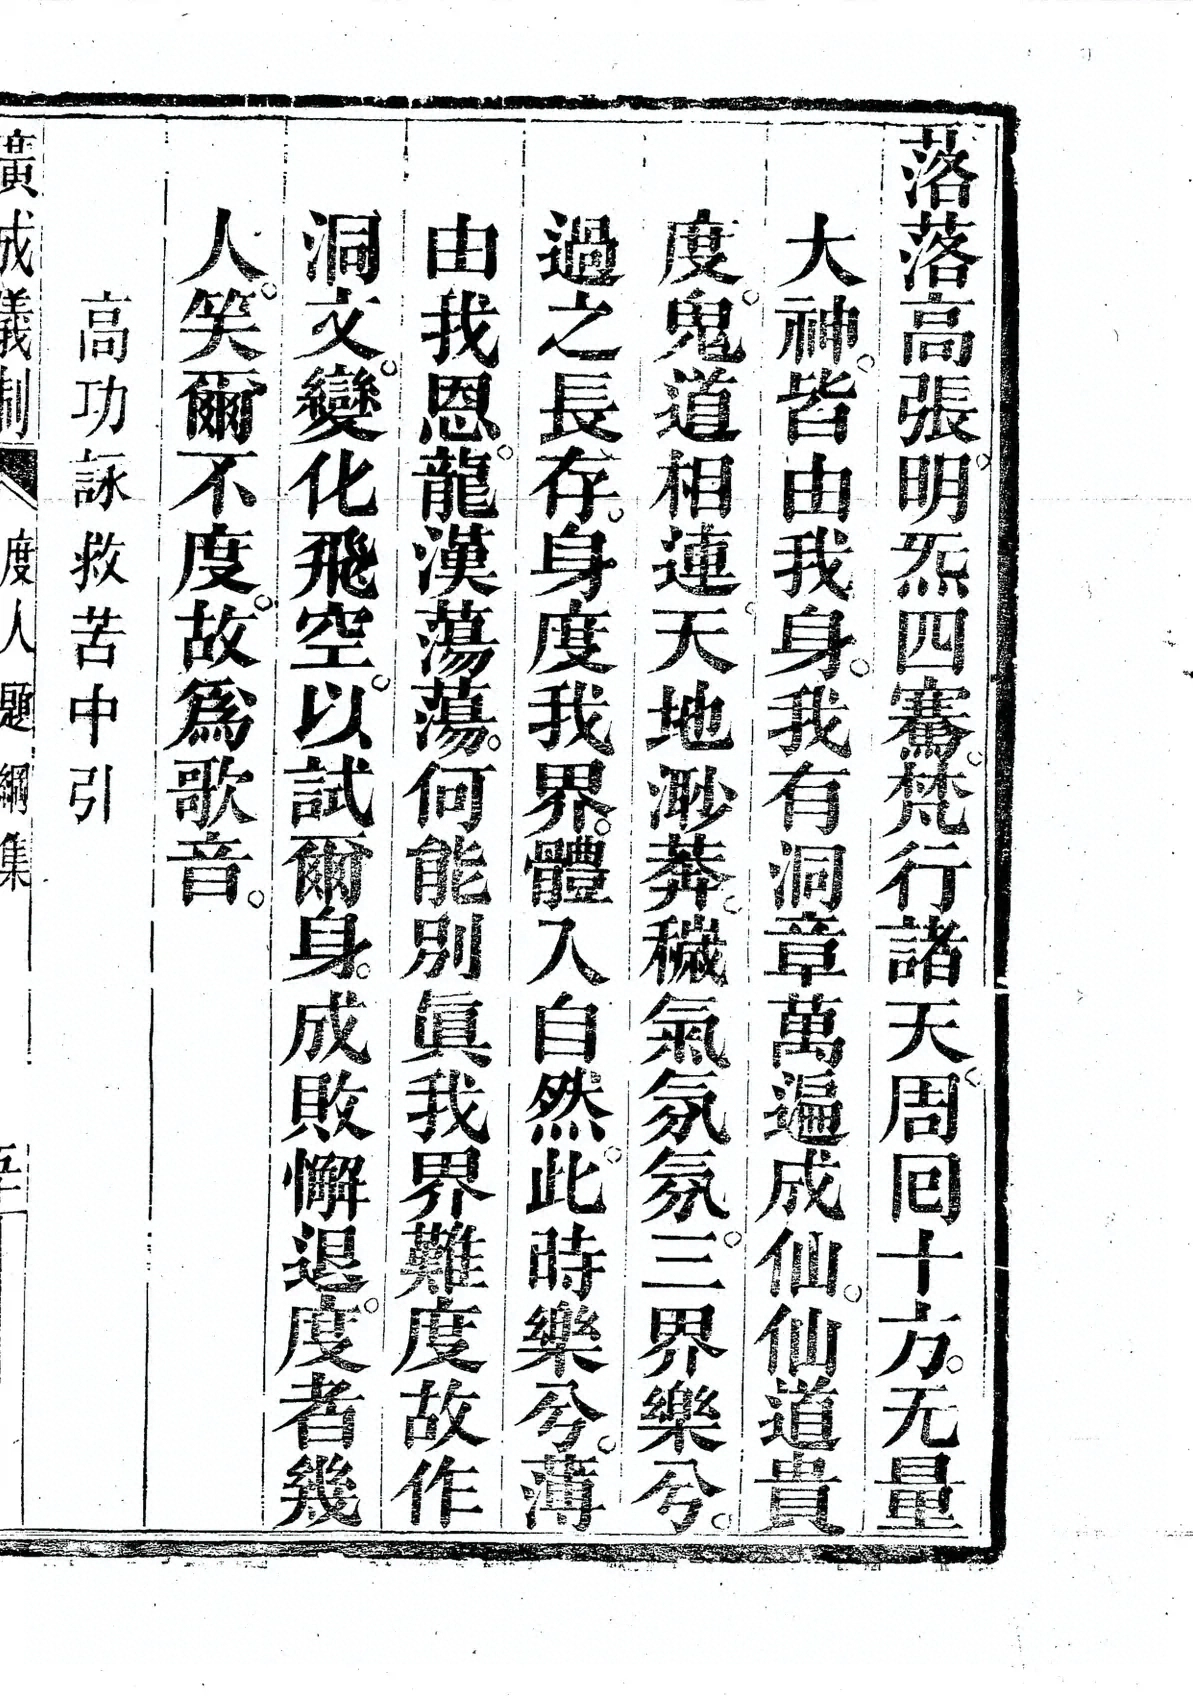 落落高張。明炁四騫。梵行諸天。周回十方。无量
大神。皆由我身。我有洞章萬遍成仙。仙道貴
度。鬼道相連。天地渺莽。穢氣氛氛。三界樂兮。
過之長存。身度我界。體入自然。此時樂兮。薄
由我恩。龍漢蕩蕩。何能別眞我界難度故作
洞文。變化飛空。以試爾身。成敗懈退。度者幾
人。笑爾不度。故爲歌音。
高功詠救苦中引
廣成儀制 度人題綱集